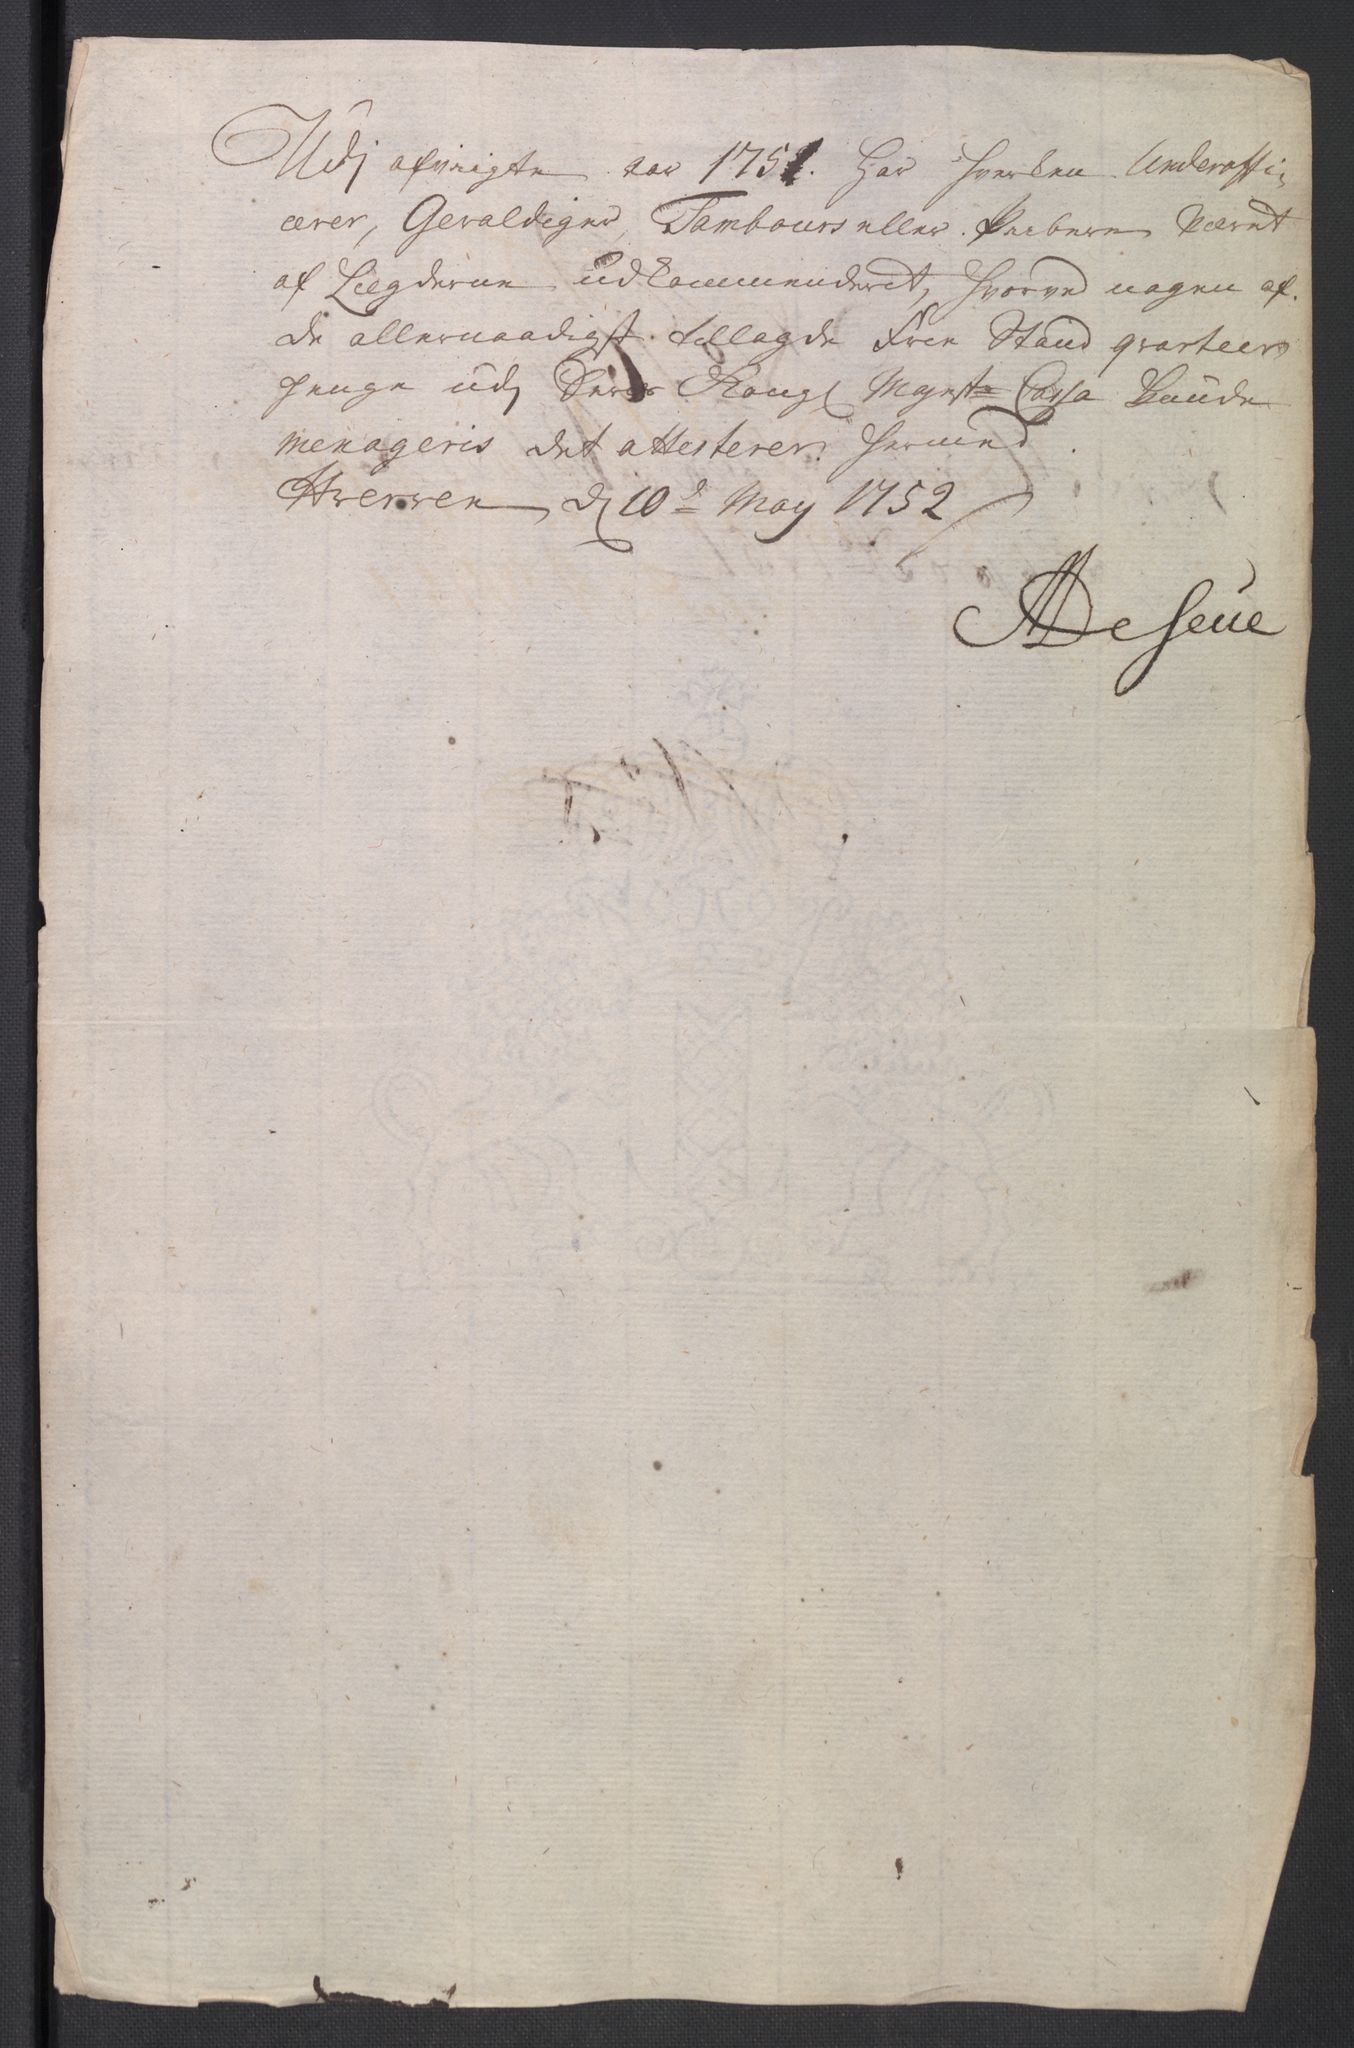 Udj afvigte aar 1751. Har hverken Underoffi-
cerer, Gevaldiger, Tambours eller Pibere været
af Lægderne udkommenderet, hvorved nogen af
de allernaadigst tillagde Frie Stand qvarteers
penge udj Deres Kongl Mayts Cassa Kunde
menageris det attesterer hermed
Hverven d 10de May 1752
ADeSeue